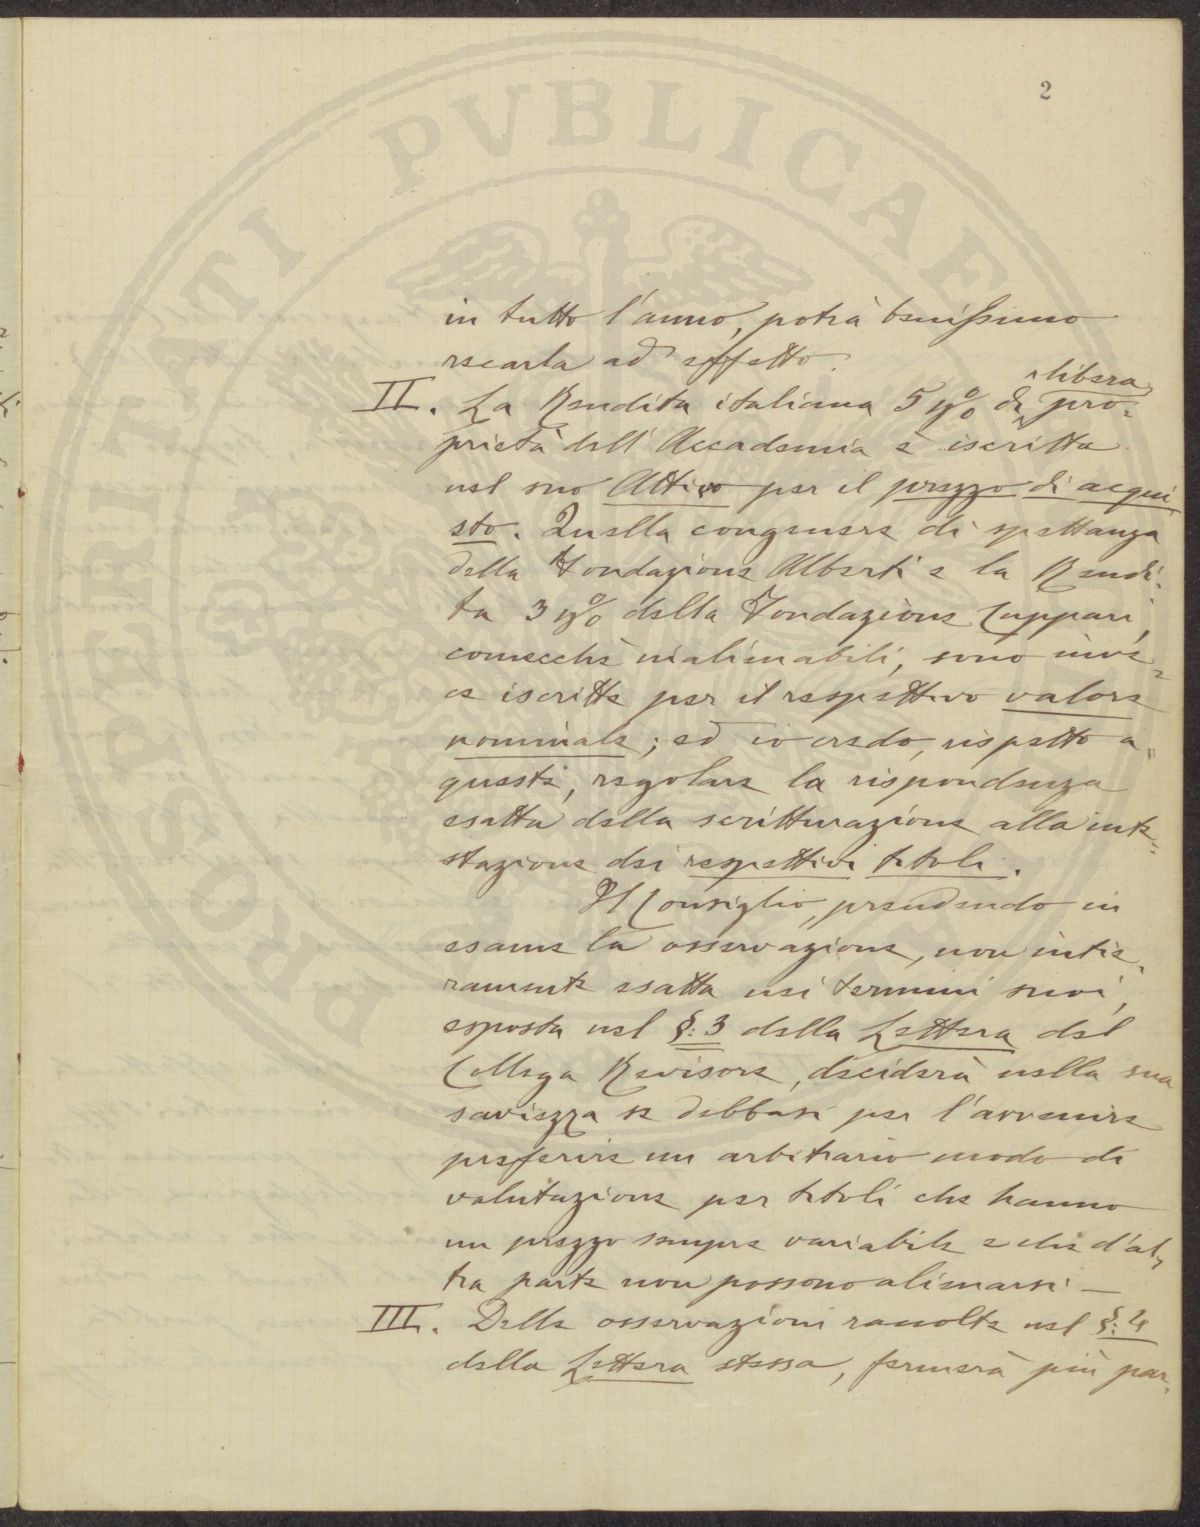 2
in tutto l'anno, potrà benissimo
recarla ad effetto.
II. La Rendita italiana 5 % di ^libera pro-
prietà dell'Accademia è iscritta
nel suo Attivo per il prezzo di acqui
sto. Quella congenere di spettanza
della Fondazione Alberti e la Rendi-
ta 3 % della Fondazione Cuppari,
comecchè inalienabili, sono inve=
ce iscritte per il respettivo valore
nominale; ed io credo, rispetto a=
queste, regolare la rispondenza
esatta della scritturazione alla inte=
stazione dei respettivi titoli.
Il Consiglio, prendendo in
esame la osservazione, non intie-
ramente esatta nei termini suoi,
esposta nel §: 3 della Lettera del
Collega Revisore, deciderà nella sua
saviezza se debbasi per l'avvenire
preferire un arbitrario modo di
valutazione per titoli che hanno
un prezzo sempre variabile e che d'al-
tra parte non possono alienarsi —
III. Delle osservazioni raccolte nel §: 4
della Lettera stessa, fermerà più par-
PROSPERITATI PVBLICAE